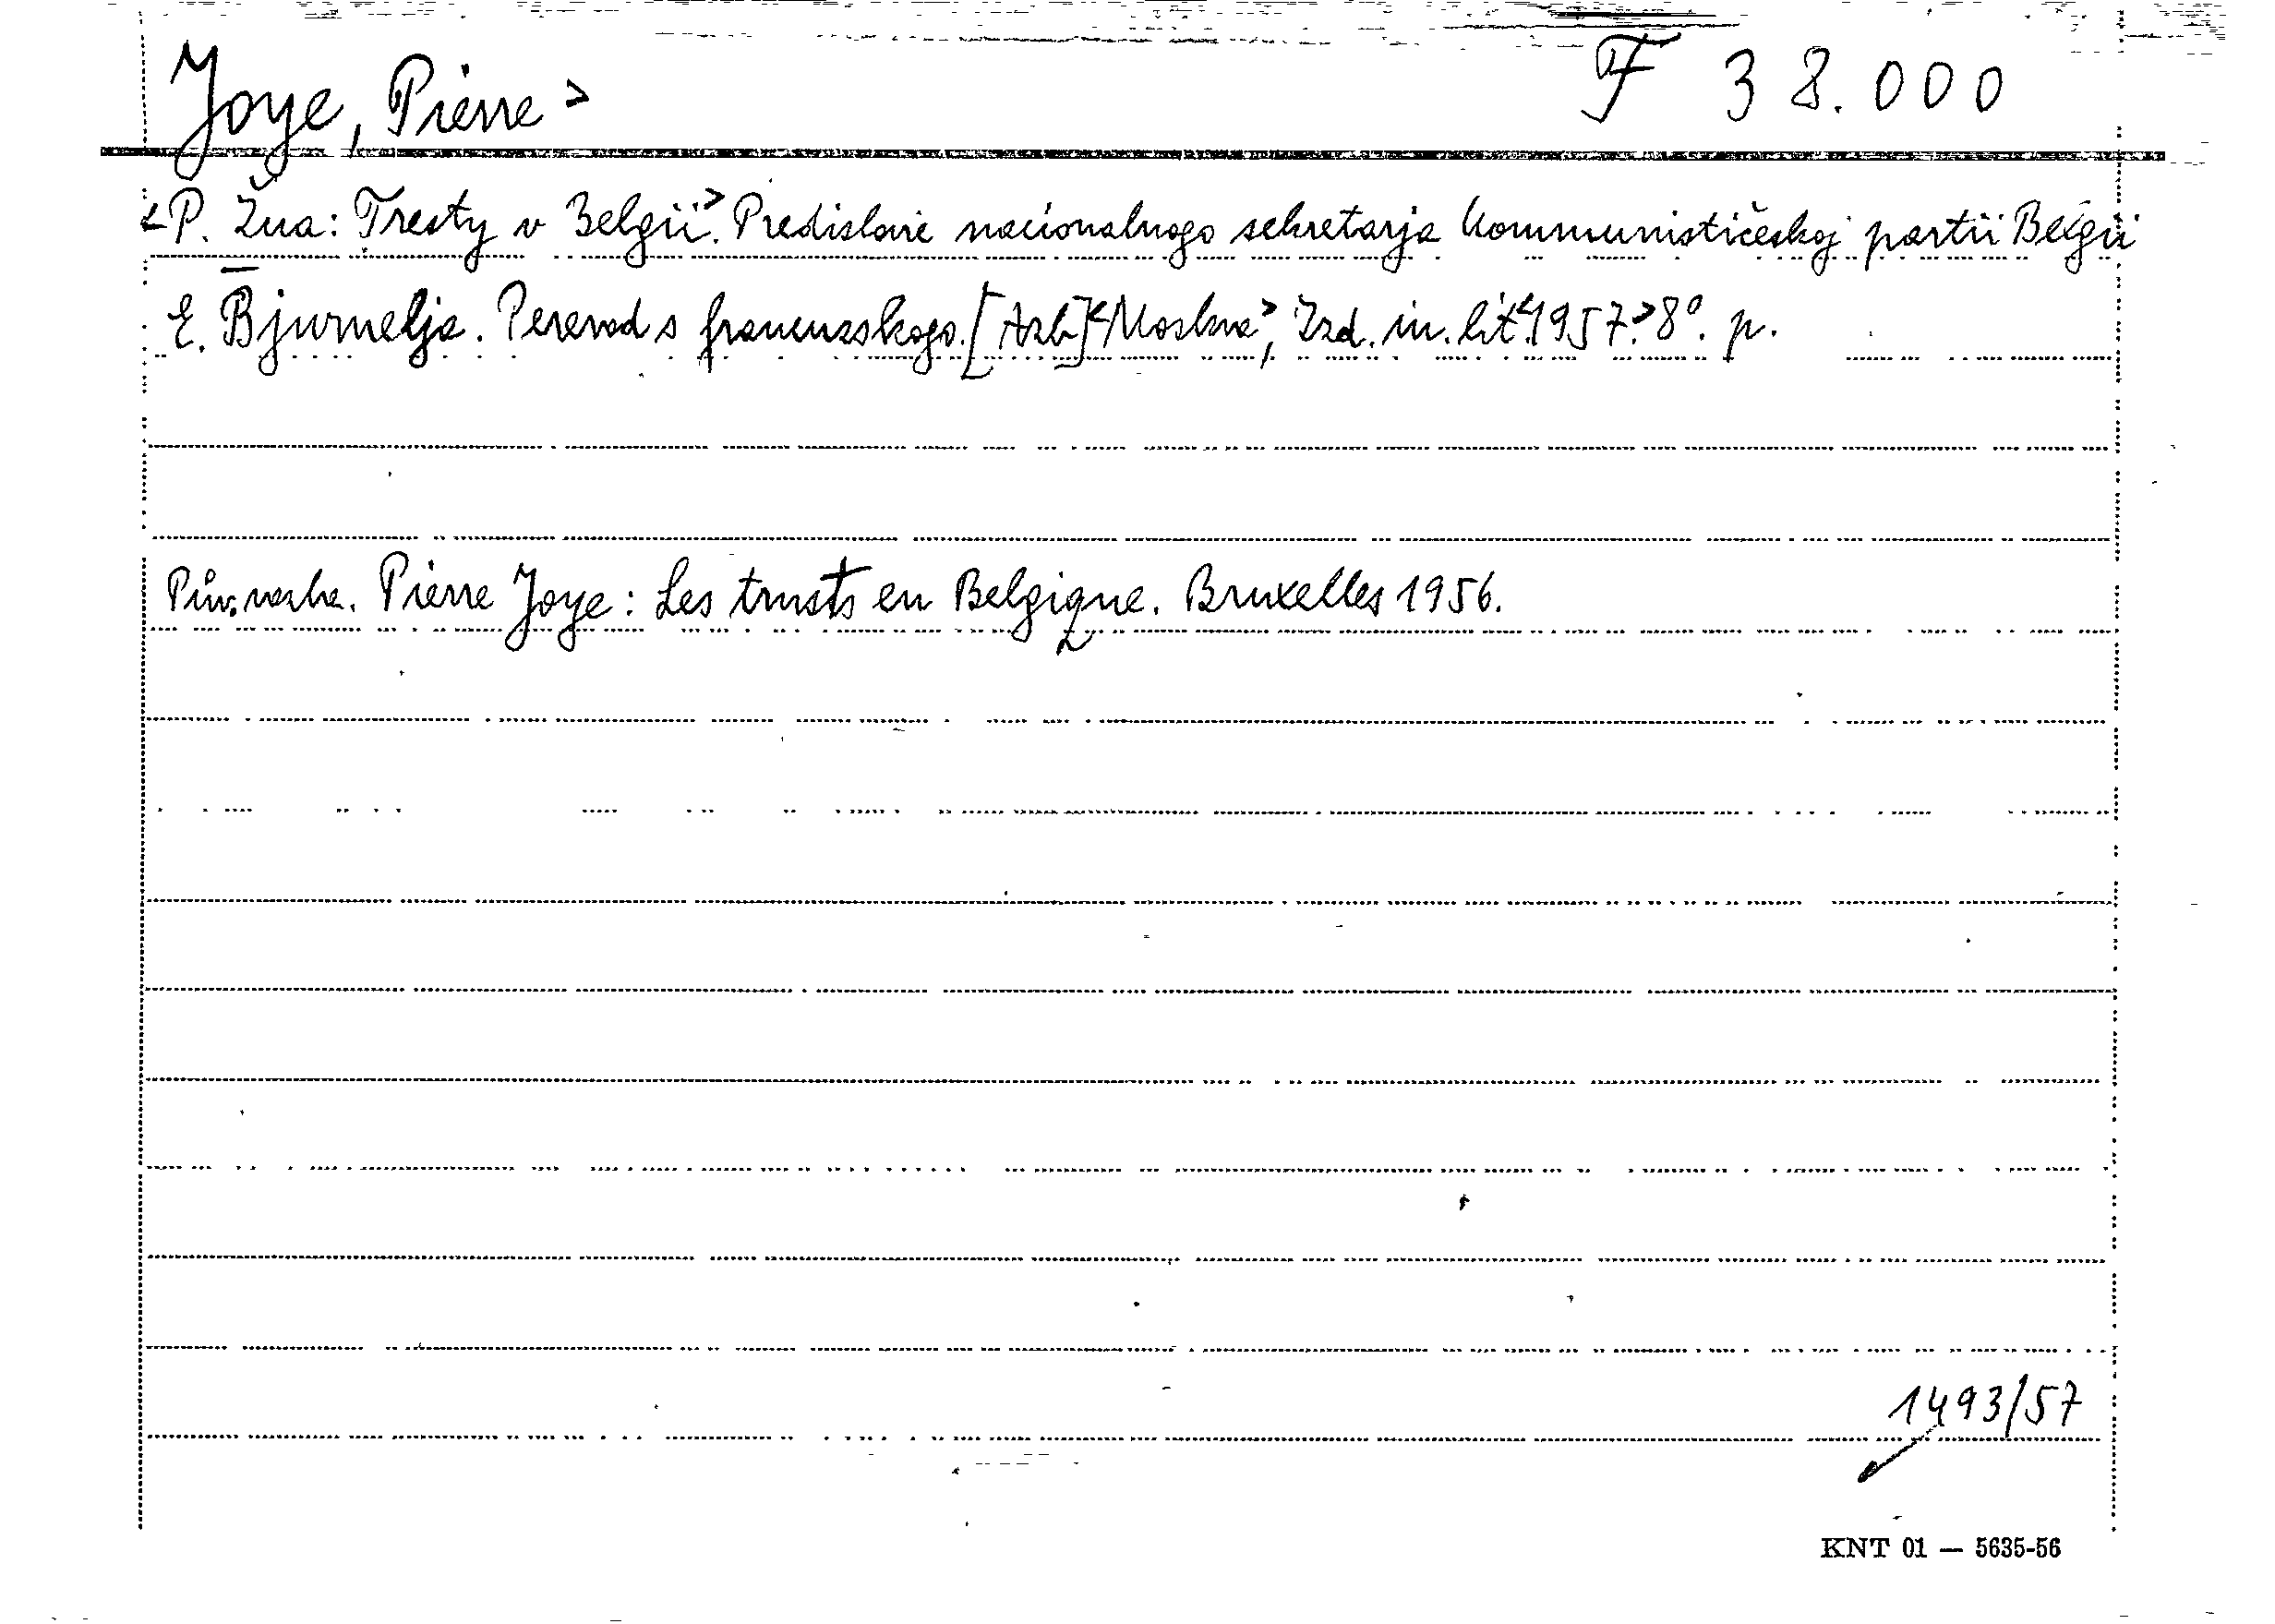 Joye, Pierre >
F 38.000
<P. Žua: Tresty v Belgii.> Predislovie nacionalnogo sekretarja Kommunističeskoj partii Belgii
E. Bjurnelja. Perevod s francuzskogo. [Azb] <Moskva>, Izd. in. lit. <1957.> 8°. p.
Pův. nazba. Pierre Joye: Les trusts en Belgique. Bruxelles 1956.
1493/57
KNT 01 — 5635-56